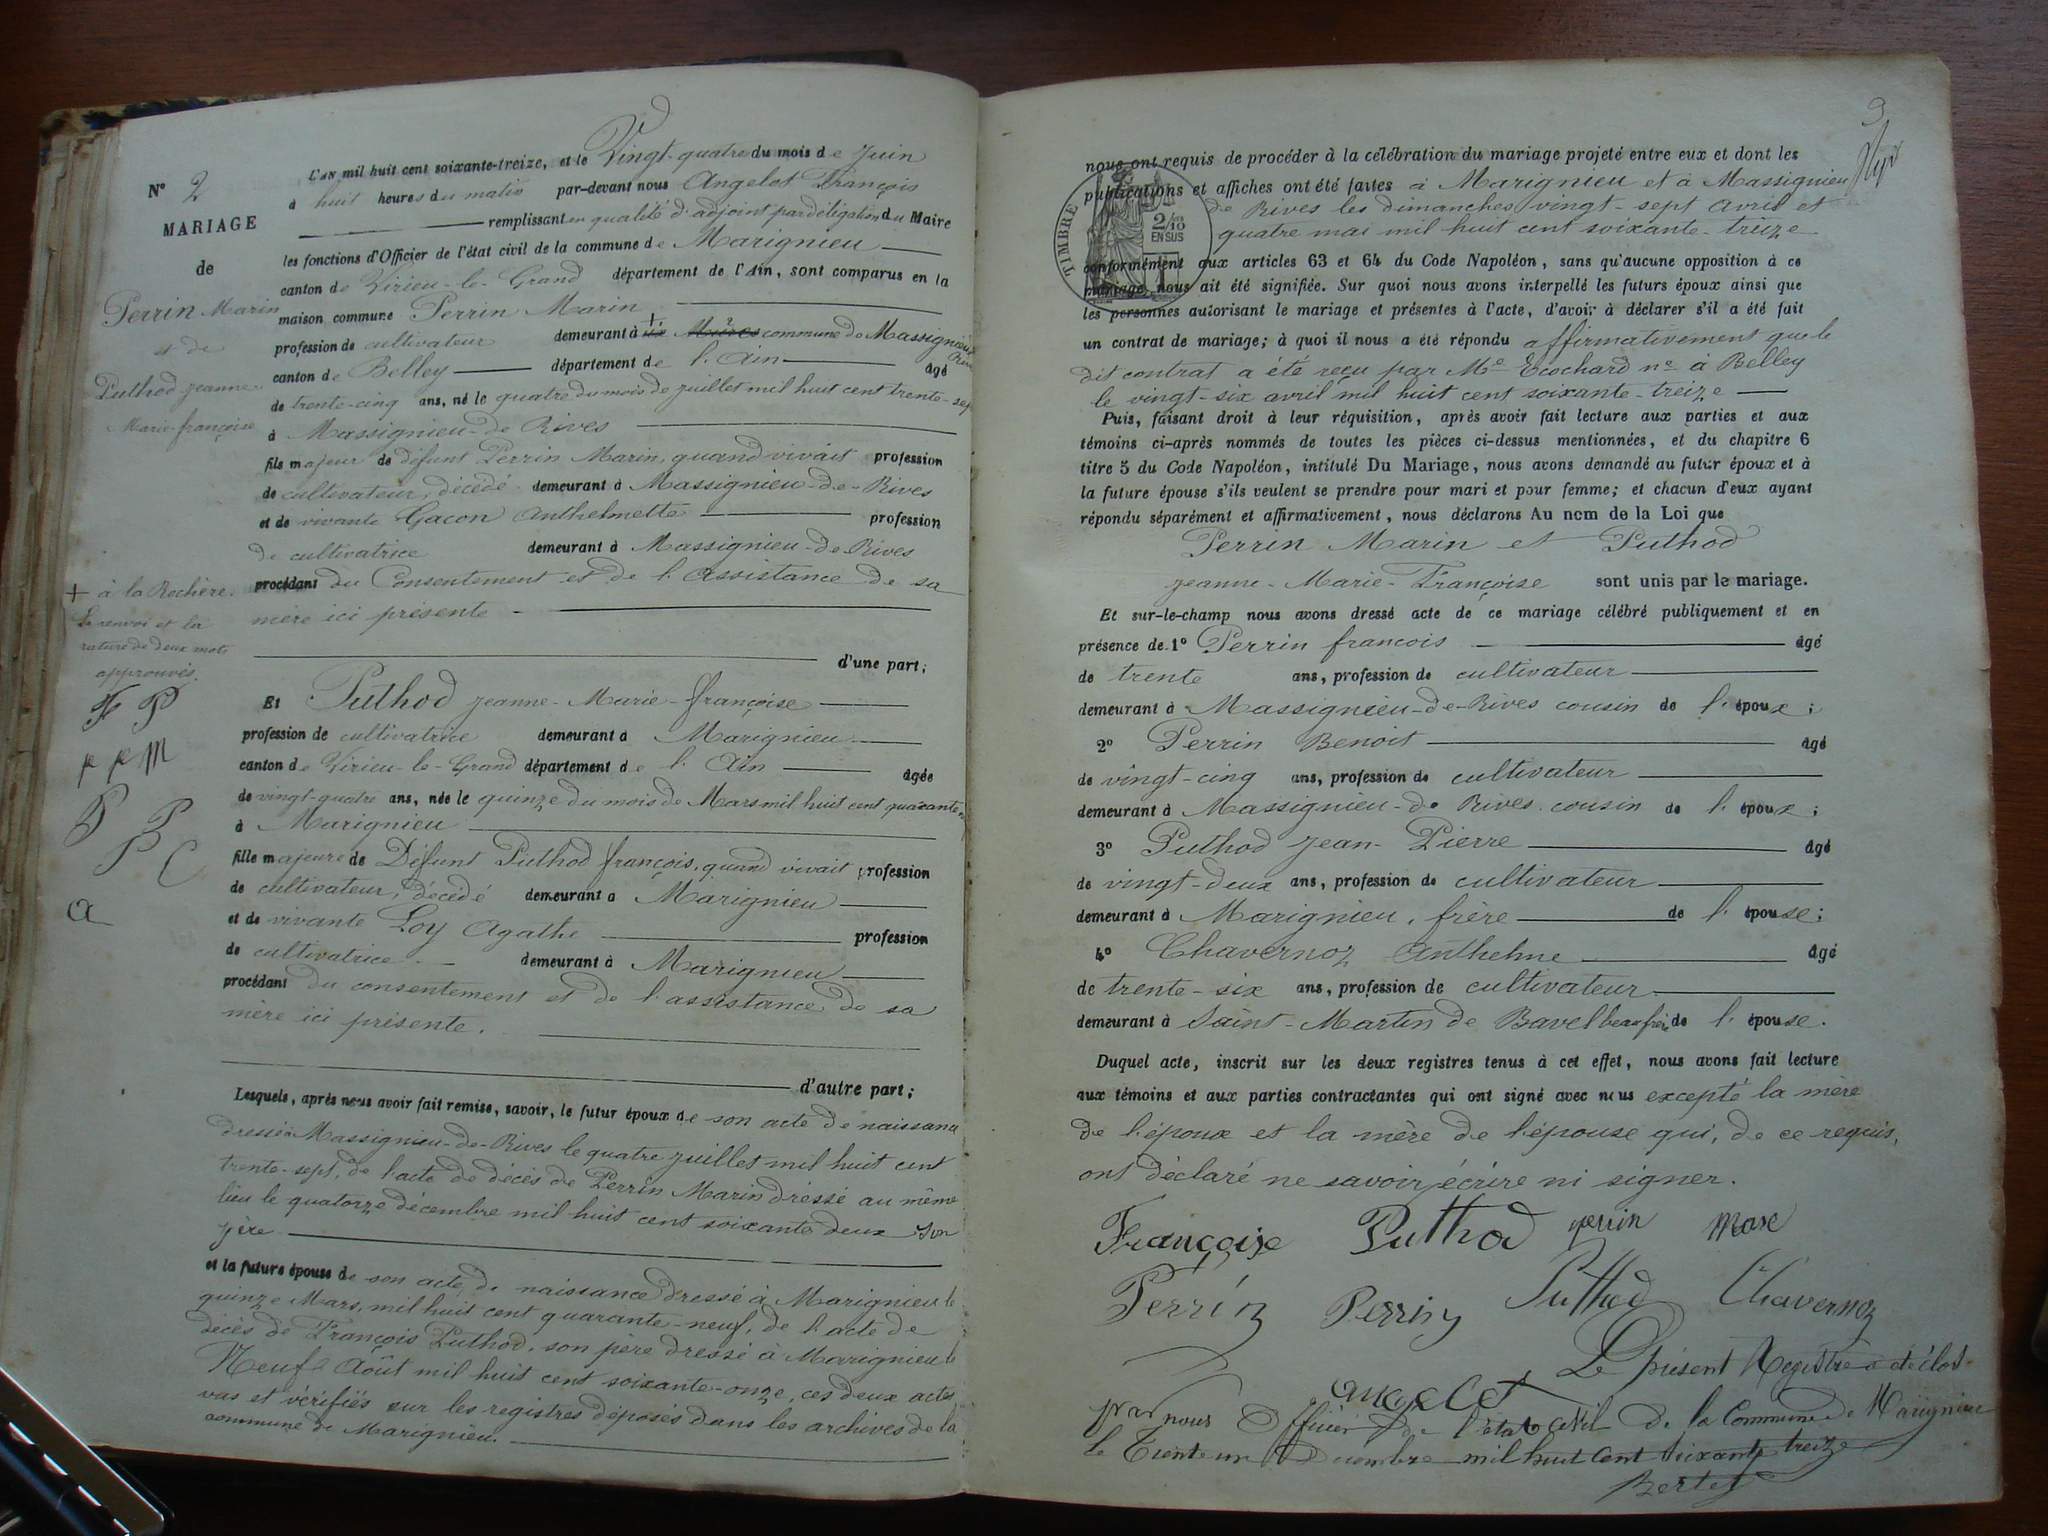 N° 2
MARIAGE
de
Perrin Marin
et de
Puthod Jeanne
Marie-françoise
+ à la Rochère.
le renvoi et la
rature de deux mots
approuvés.
F P
P P M
P P
P C
a
L'AN mil huit cent soixante-treize, et le Vingt-quatre du mois de Juin
à huit heures du matin par-devant nous Angelot François
remplissant en qualité d'adjoint par délégation du Maire
les fonctions d'Officier de l'état civil de la commune de Marignieu
canton de Virieu-le-Grand département de l'Ain, sont comparus en la
maison commune Perrin Marin
profession de cultivateur demeurant à + commune de Massignieu de Rives
canton de Belley département de l'Ain âgé
de trente-cinq ans, né le quatre du mois de Juillet mil huit cent trente-sept
à Massignieu-de Rives
fils majeur de défunt Perrin Marin, quand vivait profession
de cultivateur, décédé demeurant à Massignieu-de-Rives
et de vivante Gacon Anthelmette profession
de cultivatrice demeurant à Massignieu-de Rives
procédant du Consentement et de l'Assistance de sa
mère ici présente
d'une part;
Et Puthod Jeanne-Marie-françoise
profession de cultivatrice demeurant à Marignieu
canton de Virieu-le-Grand département de l'Ain âgée
de vingt-quatre ans, née le quinze du mois de Mars mil huit cent quarante
à Marignieu
fille majeure de Défunt Puthod françois, quand vivait profession
de cultivateur, décédé demeurant à Marignieu
et de vivante Loy Agathe profession
de cultivatrice demeurant à Marignieu
procédant du consentement et de l'assistance de sa
mère ici présente.
d'autre part;
Lesquels, après nous avoir fait remise, savoir, le futur époux de son acte de naissance
dressé à Massignieu-de-Rives le quatre juillet mil huit cent
trente-sept, de l'acte de décès de Perrin Marin dressé au même
lieu le quatorze décembre mil huit cent soixante deux son
père
et la future épouse de son acte de naissance dressé à Marignieu le
quinze Mars, mil huit cent quarante-neuf, de l'acte de
décès de François Puthod, son père dressé à Marignieu le
Neuf Août mil huit cent soixante-onze, ces deux actes
vus et vérifiés sur les registres déposés dans les archives de la
commune de Marignieu.
3
TIMBRE
2/10
EN SUS
nous ont requis de procéder à la célébration du mariage projeté entre eux et dont les
publications et affiches ont été faites à Marignieu et à Massignieu
de Rives les dimanches vingt-sept avril et
quatre mai mil huit cent soixante-treize
conformément aux articles 63 et 64 du Code Napoléon, sans qu'aucune opposition à ce
mariage nous ait été signifiée. Sur quoi nous avons interpellé les futurs époux ainsi que
les personnes autorisant le mariage et présentes à l'acte, d'avoir à déclarer s'il a été fait
un contrat de mariage; à quoi il nous a été répondu affirmativement que le
dit contrat a été reçu par Me Ecochard nre à Belley
le vingt-six avril mil huit cent soixante-treize
Puis, faisant droit à leur réquisition, après avoir fait lecture aux parties et aux
témoins ci-après nommés de toutes les pièces ci-dessus mentionnées, et du chapitre 6
titre 5 du Code Napoléon, intitulé Du Mariage, nous avons demandé au futur époux et à
la future épouse s'ils veulent se prendre pour mari et pour femme; et chacun d'eux ayant
répondu séparément et affirmativement, nous déclarons Au nom de la Loi que
Perrin Marin et Puthod
Jeanne-Marie-Françoise sont unis par le mariage.
Et sur-le-champ nous avons dressé acte de ce mariage célébré publiquement et en
présence de 1° Perrin françois âgé
de trente ans, profession de cultivateur
demeurant à Massignieu-de-Rives cousin de l'époux;
2° Perrin Benoit âgé
de vingt-cinq ans, profession de cultivateur
demeurant à Massignieu-de Rives cousin de l'époux;
3° Puthod Jean-Pierre âgé
de vingt-deux ans, profession de cultivateur
demeurant à Marignieu, frère de l'épouse;
4° Chavernoz Anthelme âgé
de trente-six ans, profession de cultivateur
demeurant à Saint-Martin de Bavel beau frère de l'épouse.
Duquel acte, inscrit sur les deux registres tenus à cet effet, nous avons fait lecture
aux témoins et aux parties contractantes qui ont signé avec nous excepté la mère
de l'époux et la mère de l'épouse qui, de ce requis,
ont déclaré ne savoir écrire ni signer.
Françoise Puthod perrin
Perrin Perrin Puthod Chavernoz
Angelot
Le présent Registre a été clos
par nous Officier de l'état civil de la Commune de Marignieu
le trente un Décembre mil huit cent soixante treize